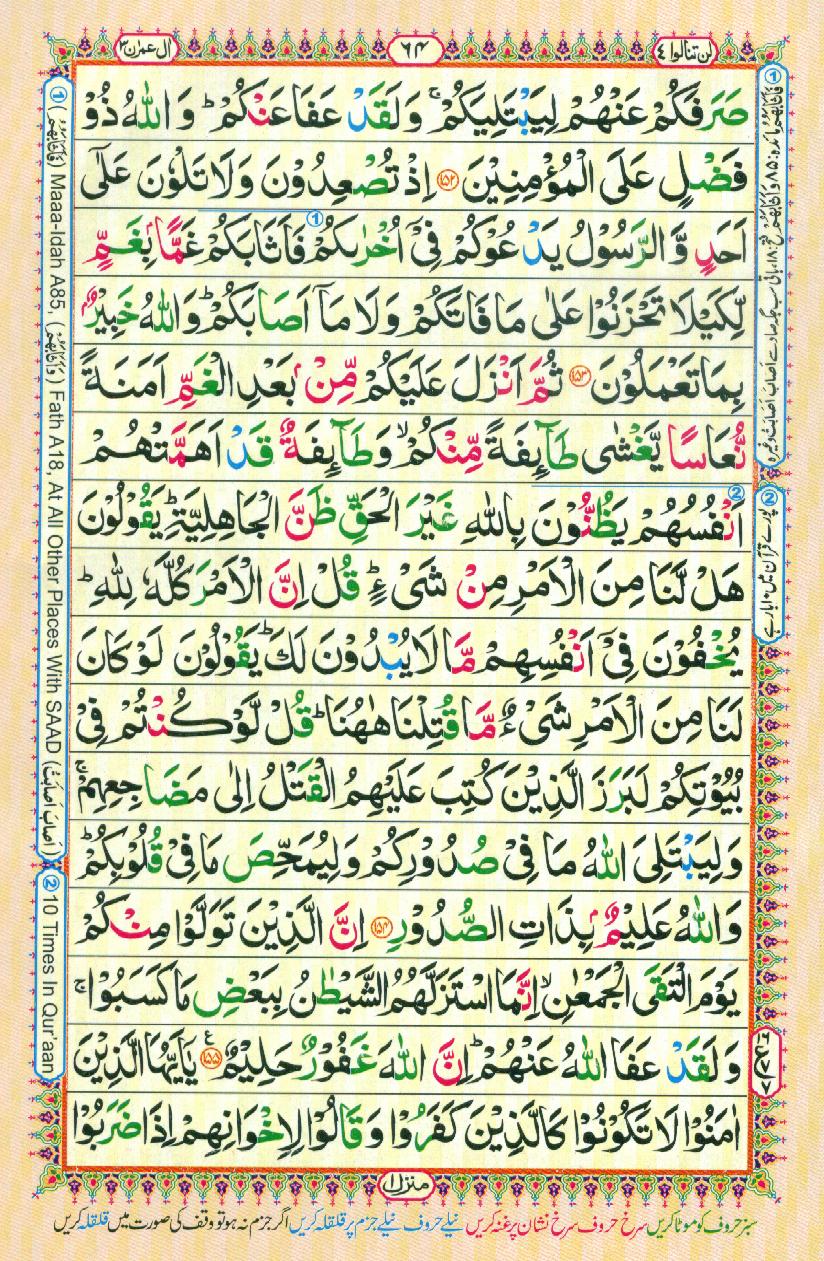 لن تنالوا ٤
٦٤
اٰل عمرٰن ٣
صَرَفَكُمْ عَنْهُمْ لِيَبْتَلِيَكُمْ ۚ وَلَقَدْ عَفَا عَنْكُمْ ؕ وَاللّٰهُ ذُوْ
فَضْلٍ عَلَى الْمُؤْمِنِيْنَ ﴿۱۵۲﴾ اِذْ تُصْعِدُوْنَ وَلَا تَلْوٗنَ عَلٰٓى
اَحَدٍ وَّالرَّسُوْلُ يَدْعُوْكُمْ فِىْۤ اُخْرٰىكُمْ فَاَثَابَكُمْ غَمًّا ۢ بِغَمٍّ
لِّكَيْلَا تَحْزَنُوْا عَلٰى مَا فَاتَكُمْ وَلَا مَاۤ اَصَابَكُمْ ؕ وَاللّٰهُ خَبِيْرٌ ۢ
بِمَا تَعْمَلُوْنَ ﴿۱۵۳﴾ ثُمَّ اَنْزَلَ عَلَيْكُمْ مِّنْ ۢ بَعْدِ الْغَمِّ اَمَنَةً
نُّعَاسًا يَّغْشٰى طَآئِفَةً مِّنْكُمْ ۙ وَطَآئِفَةٌ قَدْ اَهَمَّتْهُمْ
اَنْفُسُهُمْ يَظُنُّوْنَ بِاللّٰهِ غَيْرَ الْحَقِّ ظَنَّ الْجَاهِلِيَّةِ ؕ يَقُوْلُوْنَ
هَلْ لَّنَا مِنَ الْاَمْرِ مِنْ شَىْءٍ ؕ قُلْ اِنَّ الْاَمْرَ كُلَّهٗ لِلّٰهِ ؕ
يُخْفُوْنَ فِىْۤ اَنْفُسِهِمْ مَّا لَا يُبْدُوْنَ لَكَ ؕ يَقُوْلُوْنَ لَوْ كَانَ
لَنَا مِنَ الْاَمْرِ شَىْءٌ مَّا قُتِلْنَا هٰهُنَا ؕ قُلْ لَّوْ كُنْتُمْ فِىْ
بُيُوْتِكُمْ لَبَرَزَ الَّذِيْنَ كُتِبَ عَلَيْهِمُ الْقَتْلُ اِلٰى مَضَاجِعِهِمْ ۚ
وَلِيَبْتَلِىَ اللّٰهُ مَا فِىْ صُدُوْرِكُمْ وَلِيُمَحِّصَ مَا فِىْ قُلُوْبِكُمْ ؕ
وَاللّٰهُ عَلِيْمٌ ۢ بِذَاتِ الصُّدُوْرِ ﴿۱۵۴﴾ اِنَّ الَّذِيْنَ تَوَلَّوْا مِنْكُمْ
يَوْمَ الْتَقَى الْجَمْعٰنِ ۙ اِنَّمَا اسْتَزَلَّهُمُ الشَّيْطٰنُ بِبَعْضِ مَا كَسَبُوْا ۚ
وَلَقَدْ عَفَا اللّٰهُ عَنْهُمْ ؕ اِنَّ اللّٰهَ غَفُوْرٌ حَلِيْمٌ ﴿۱۵۵﴾ يٰۤاَيُّهَا الَّذِيْنَ
اٰمَنُوْا لَا تَكُوْنُوْا كَالَّذِيْنَ كَفَرُوْا وَقَالُوْا لِاِخْوَانِهِمْ اِذَا ضَرَبُوْا
منزل ١
سبز حروف کو موٹا کریں سرخ حروف سرخ نشان پر غنہ کریں نیلے حروف نیلے جزم پر قلقلہ کریں اگر جزم نہ ہو تو وقف کی صورت میں قلقلہ کریں
① (فَاَثَابَهُمُ) Maaa-Idah A85, (وَاَثَابَهُمْ) Fath A18, At All Other Places With SAAD (اَصَابَ اَصَابَتْ)
② 10 Times In Qur'aan
② پورے قرآن میں ۱۰ بار ہے